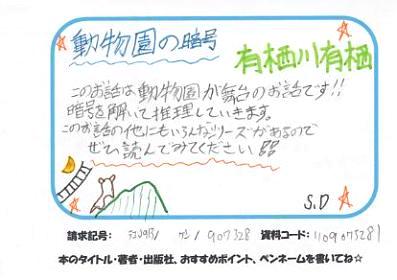 動物園の暗号
有栖川有栖
このお話は動物園が舞台のお話です!!
暗号を解いて推理していきます。
このお話の他にもいろんなシリーズがあるので
ぜひ読んでみてください!!
S.D
請求記号: / 907328 資料コード:
本のタイトル・著者・出版社、おすすめポイント、ペンネームを書いてね☆